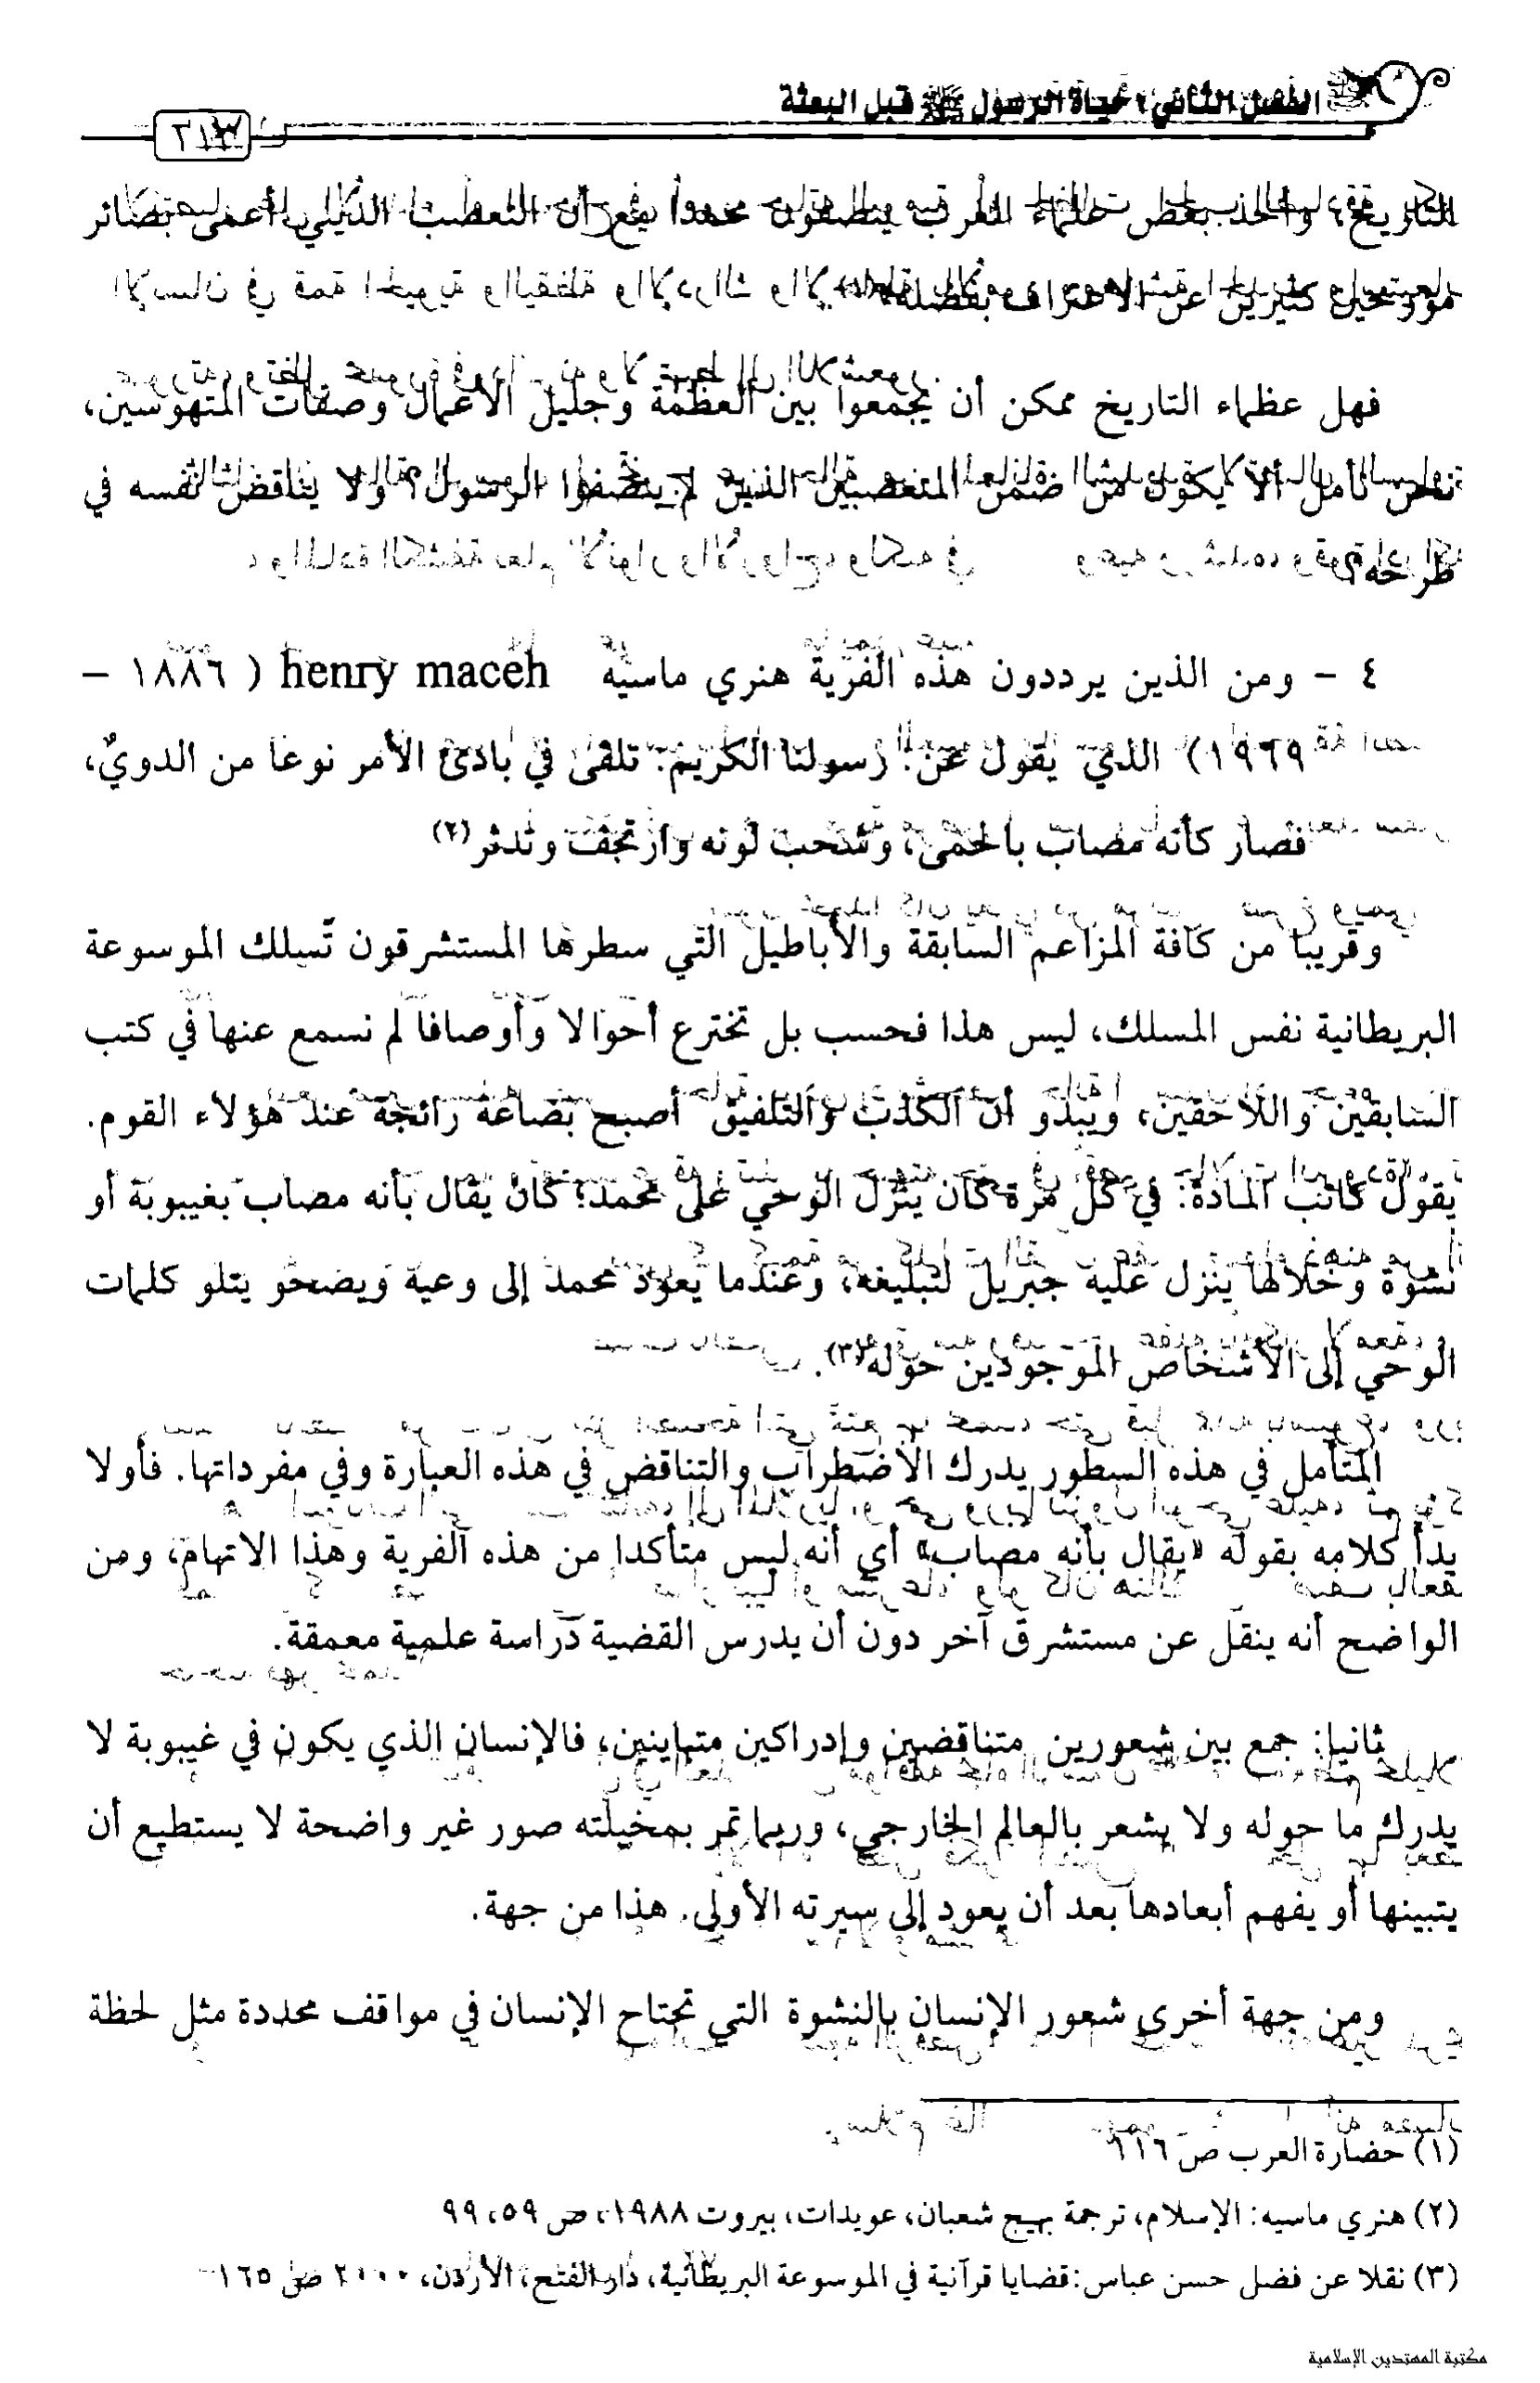 الفصل الثاني : حياة الرسول ﷺ قبل البعثة
٢١٣
التاريخ، وأخذ بعض علماء الغرب ينصفون محمدا مع أن التعصب الديني أعمى بصائر
مؤرخين كثيرين عن الاعتراف بفضله
فهل عظماء التاريخ ممكن أن يجمعوا بين العظمة وجليل الأعمال وصفات المتهوسين،
نحن نأمل ألا يكون من ضمن المتعصبين الذين لم ينصفوا الرسول؟ ولا يناقض نفسه في
طرحه؟
٤ - ومن الذين يرددون هذه الفرية هنري ماسيه henry maceh ( ١٨٨٦ -
١٩٦٩) الذي يقول عن رسولنا الكريم: تلقى في بادئ الأمر نوعا من الدويّ،
فصار كأنه مصاب بالحمى، وشحب لونه وارتجف وتدثر(٢)
وقريبا من كافة المزاعم السابقة والأباطيل التي سطرها المستشرقون تسلك الموسوعة
البريطانية نفس المسلك، ليس هذا فحسب بل تخترع أحوالا وأوصافا لم نسمع عنها في كتب
السابقين واللاحقين، ويبدو أن الكذب والتلفيق أصبح بضاعة رائجة عند هؤلاء القوم.
يقول كاتب المادة: في كل مرة كان ينزل الوحي على محمد؛ كان يقال بأنه مصاب بغيبوبة أو
نشوة وخلالها ينزل عليه جبريل لتبليغه، وعندما يعود محمد إلى وعيه ويضحو يتلو كلمات
الوحي إلى الأشخاص الموجودين حوله(٣).
المتأمل في هذه السطور يدرك الاضطراب والتناقض في هذه العبارة وفي مفرداتها. فأولا
يدأ كلامه بقوله «يقال بأنه مصاب» أي أنه ليس متأكدا من هذه الفرية وهذا الاتهام، ومن
الواضح أنه ينقل عن مستشرق آخر دون أن يدرس القضية دراسة علمية معمقة.
ثانيا: جمع بين شعورين متناقضين وإدراكين متباينين، فالإنسان الذي يكون في غيبوبة لا
يدرك ما حوله ولا يشعر بالعالم الخارجي، وربما تمر بمخيلته صور غير واضحة لا يستطيع أن
يتبينها أو يفهم أبعادها بعد أن يعود إلى سيرته الأولى. هذا من جهة.
ومن جهة أخرى شعور الإنسان بالنشوة التي تجتاح الإنسان في مواقف محددة مثل لحظة
(١) حضارة العرب ص ١١٦
(٢) هنري ماسيه: الإسلام، ترجمة بهيج شعبان، عويدات، بيروت ١٩٨٨، ص ٥٩، ٩٩
(٣) نقلا عن فضل حسن عباس: قضايا قرآنية في الموسوعة البريطانية، دار الفتح، الأردن، ٢٠٠٠ ص ١٦٥
مكتبة المهتدين الإسلامية